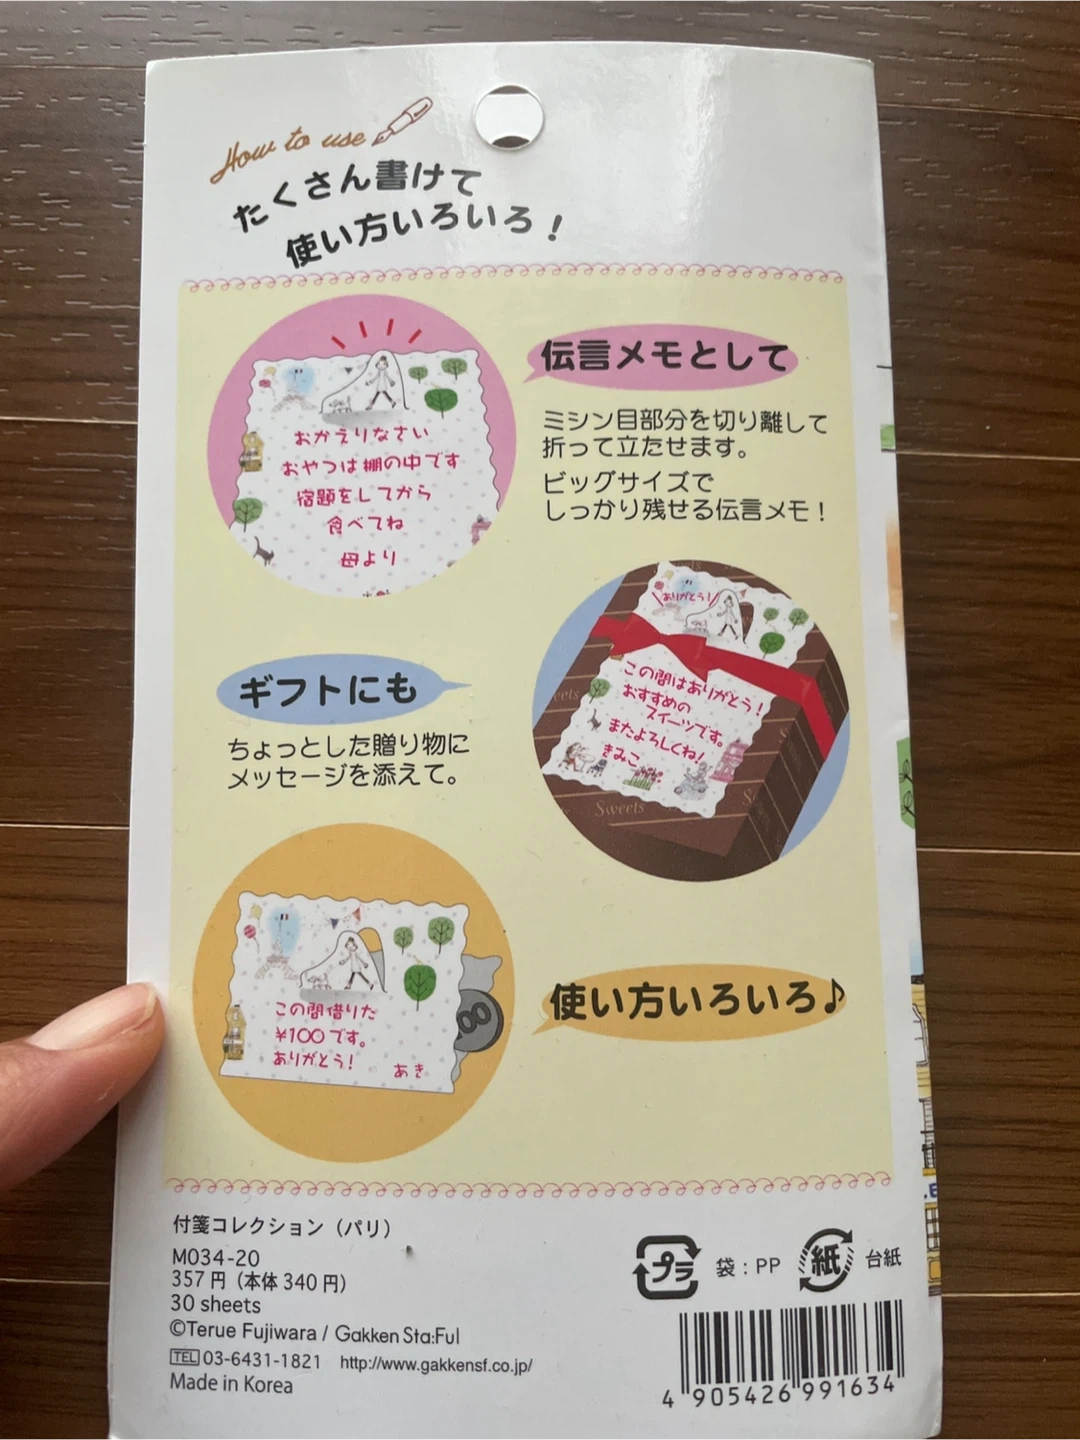 How to use
たくさん書けて
使い方いろいろ！
おかえりなさい
おやつは棚の中です
宿題をしてから
食べてね
母より
伝言メモとして
ミシン目部分を切り離して
折って立たせます。
ビッグサイズで
しっかり残せる伝言メモ！
ありがとう！
この間はありがとう！
おすすめの
スイーツです。
またよろしくね！
きみこ
Sweets
ギフトにも
ちょっとした贈り物に
メッセージを添えて。
この間借りた
¥100です。
ありがとう！
あき
使い方いろいろ♪
付箋コレクション（パリ）
M034-20
357円（本体340円）
30 sheets
©Terue Fujiwara / Gakken Sta:Ful
TEL 03-6431-1821 http://www.gakkensf.co.jp/
Made in Korea
プラ 袋：PP 紙 台紙
4 905426 991634